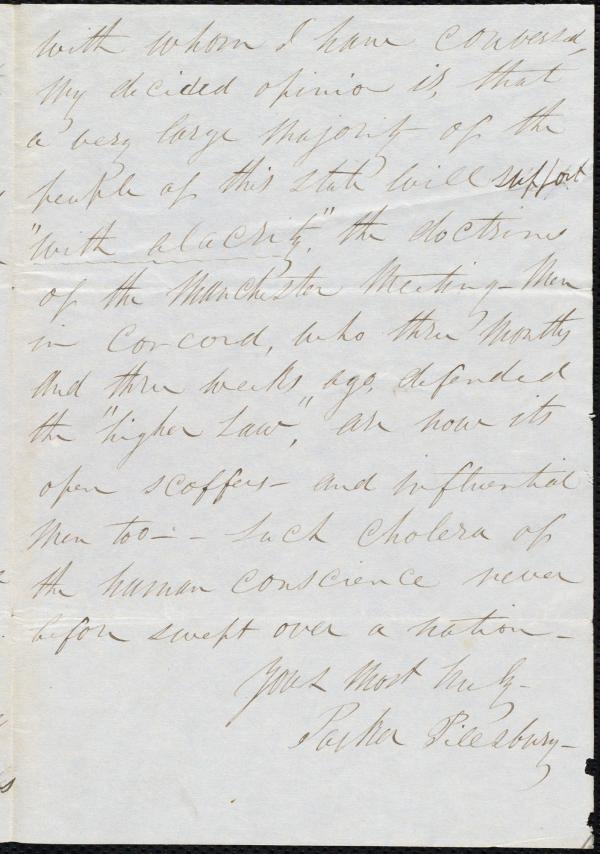 with whom I have conversed,
My decided opinion is, that
a very large majority of the
people of this state will support
"with alacrity," the doctrines
of the Manchester Meeting - Men
in Concord, who three months
and three weeks ago, defended
the "higher Law," are now its
open scoffers - and influential
men too - - Such cholera of
the human conscience never
before swept over a nation -
Yours Most truly -
Parker Pillsbury -